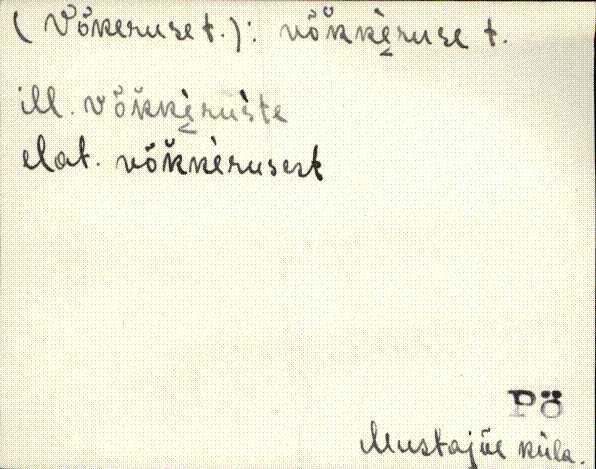 (Võkeruse t.): võk̆kèruse t.
ill. võk̆kèruste
elat. võk̆kèrusest
Pö
Mustajõe küla.